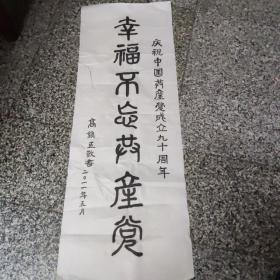 庆祝中国共产党成立九十周年
幸福不忘共産党
二〇一一年五月